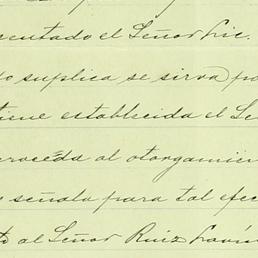 sentado el Señor Lic.
lo suplica se sirva pa
tiene establecida el Se
proceda al otorgamien
y señala para tal efec
al Señor Ruiz